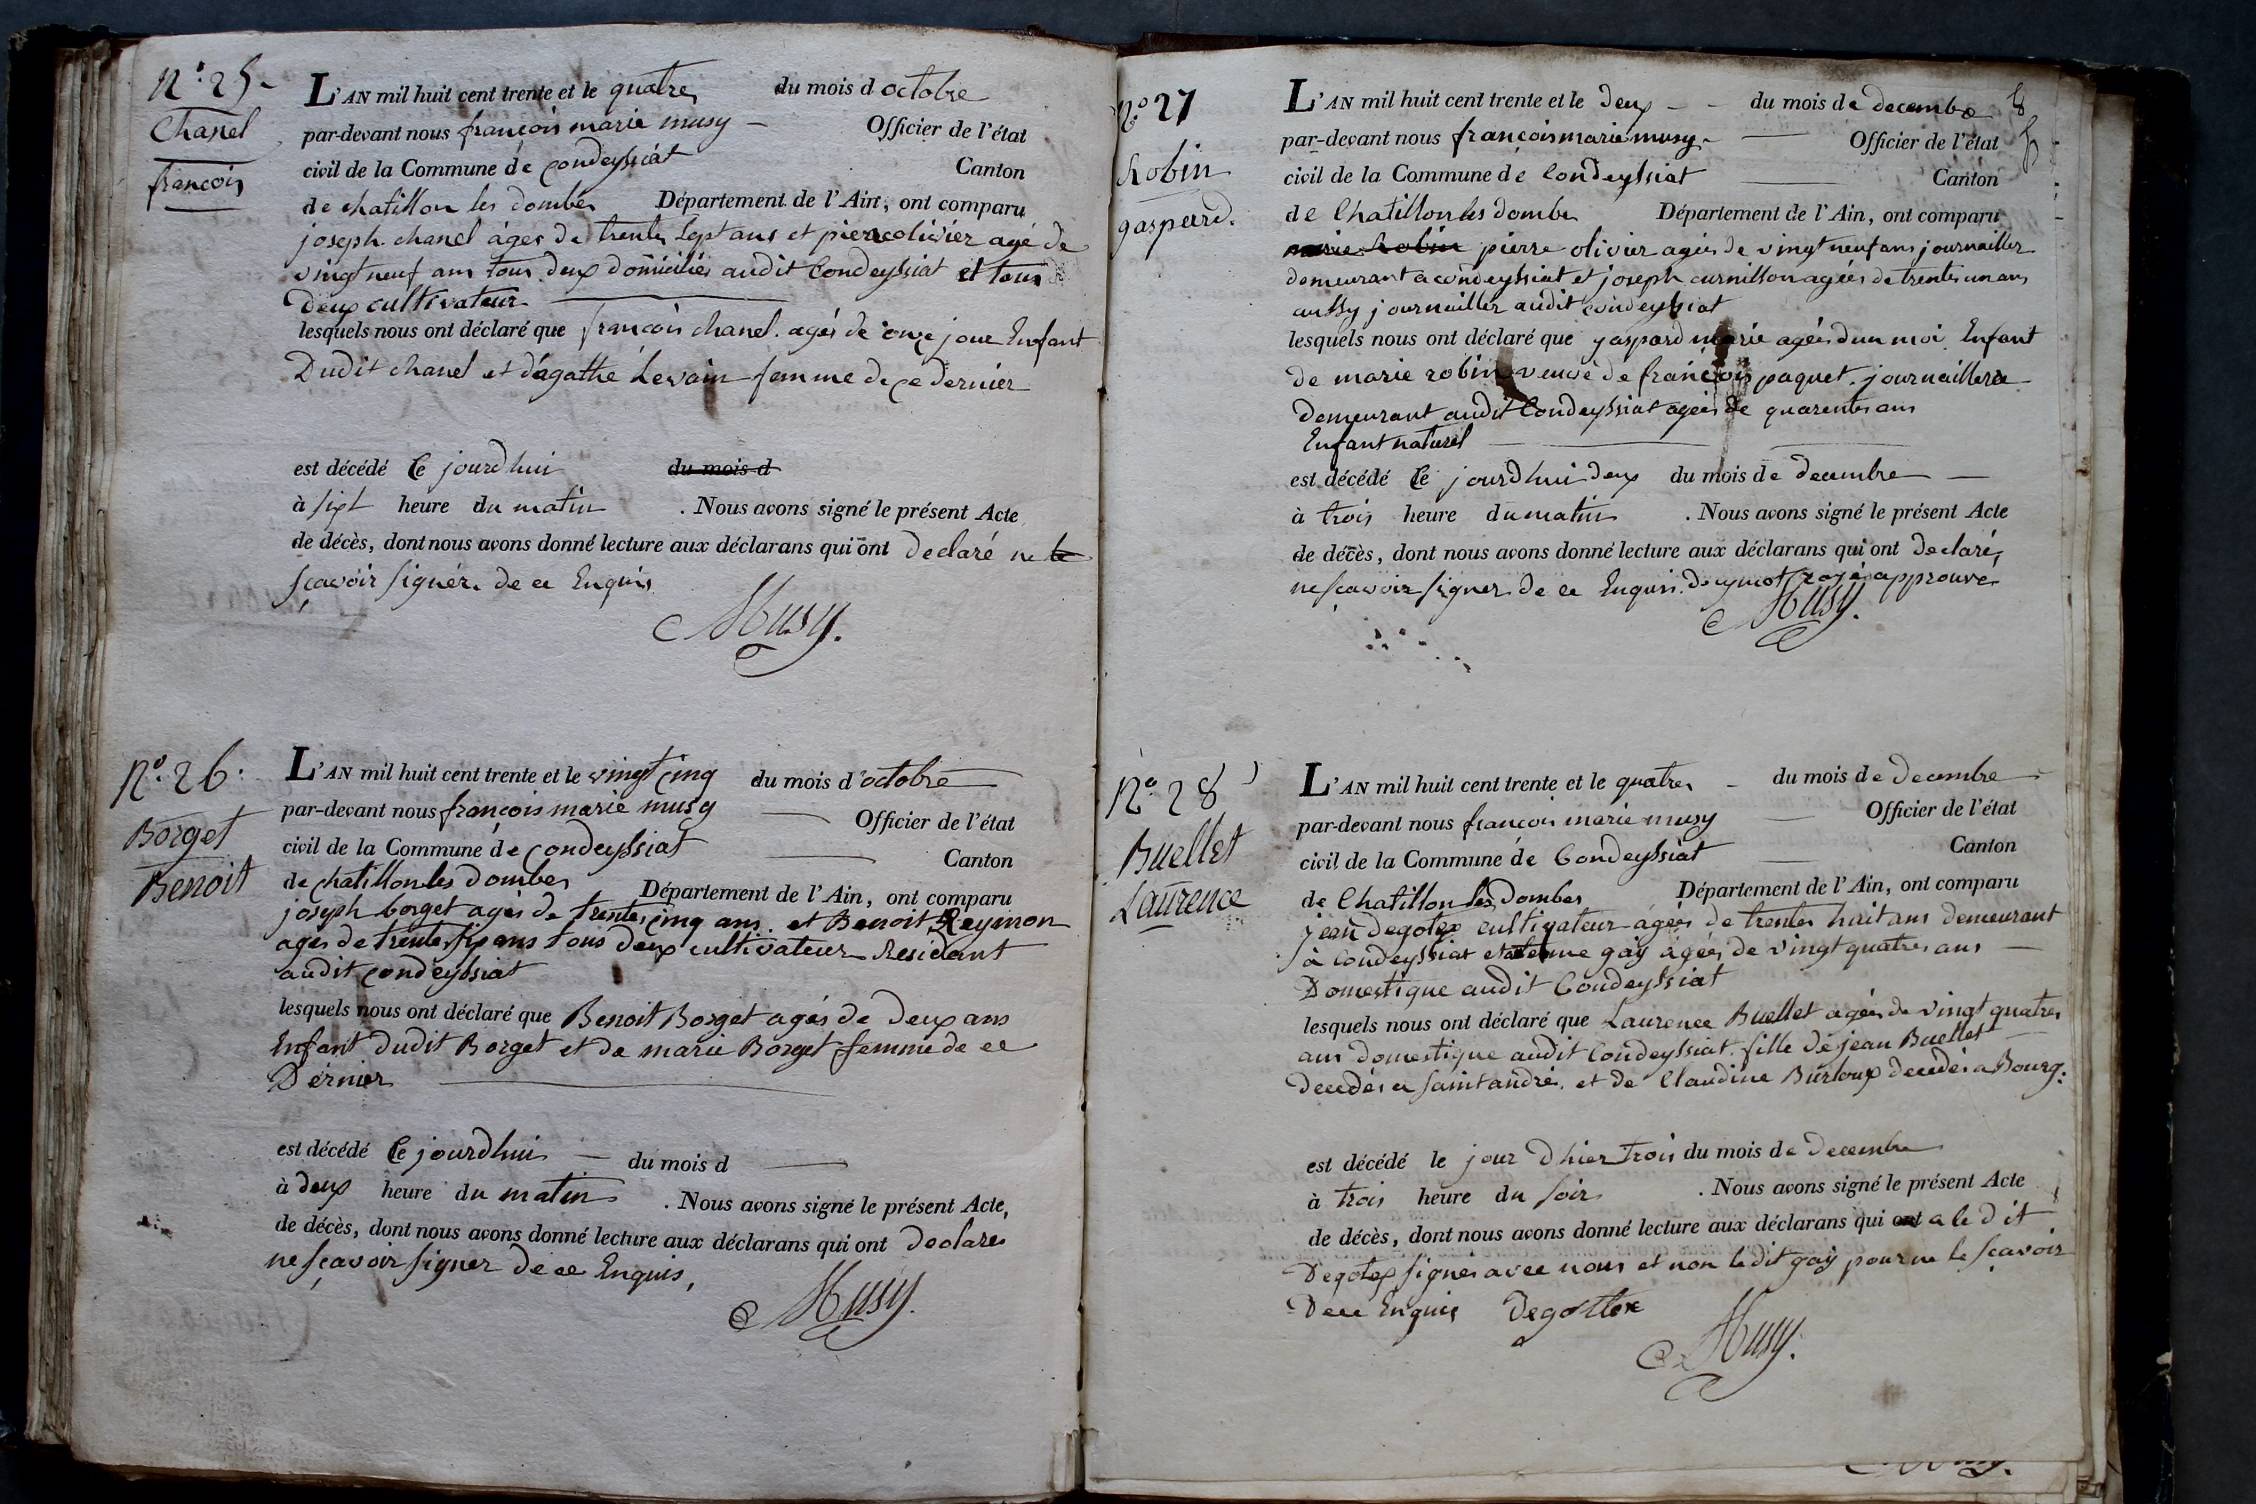 N.º 25
Chanel
françois
L'AN mil huit cent trente et le quatre du mois d octobre
par-devant nous françois marie musy Officier de l'état
civil de la Commune de Condeyssiat Canton
de chatillon les dombes Département de l'Ain, ont comparu
joseph chanel agés de trente sept ans et pierre olivier agé de
vingt neuf ans tous deux domiciliés audit Condeyssiat et tous
deux cultivateur
lesquels nous ont déclaré que françois chanel agés de onze jour Enfant
Dudit chanel et d'agathe Levain femme de ce dernier
est décédé Ce jourdhui du mois d
à sixt heure du matin . Nous avons signé le présent Acte
de décès, dont nous avons donné lecture aux déclarans qui ont declaré ne le
sçavoir signér de ce Enquis
Musy.
N.º 26
Borget
Benoit
L'AN mil huit cent trente et le vingt cinq du mois d'octobre
par-devant nous françois marie musy Officier de l'état
civil de la Commune de Condeyssiat Canton
de chatillon les dombes Département de l'Ain, ont comparu
joseph borget agés de trente cinq ans et Benoit Reymon
agés de trente six ans tous deux cultivateur Residant
audit Condeyssiat
lesquels nous ont déclaré que Benoit Borget agés de deux ans
Enfant dudit Borget et de marie Borget femme de ce
Dernier
est décédé Ce jourdhui du mois d
à deux heure du matin . Nous avons signé le présent Acte,
de décès, dont nous avons donné lecture aux déclarans qui ont declare
ne sçavoir signer de ce Enquis,
Musy.
N.º 27
Robin
gaspard.
L'AN mil huit cent trente et le deux du mois de decembre
par-devant nous françois marie musy Officier de l'état
civil de la Commune de Condeyssiat Canton
de Chatillon les dombe Département de l'Ain, ont comparu
marie Robin pierre olivier agés de vingt neuf ans journailler
demeurant a condeyssiat et joseph curnillon agées de trente un ans
aussy journailler audit condeyssiat
lesquels nous ont déclaré que gaspard marie agées dun moi Enfant
de marie robin veuve de françois paquet journaillere
demeurant audit Condeyssiat agées de quarente ans
Enfant naturel
est décédé Ce jourdhui deux du mois de decembre
à trois heure du matin . Nous avons signé le présent Acte
de décès, dont nous avons donné lecture aux déclarans qui ont declaré,
ne sçavoir signer de ce Enquis. deux mot rayé approuve
Musy.
N.º 28
Buellet
Laurence
L'AN mil huit cent trente et le quatre du mois de decembre
par-devant nous françois marie musy Officier de l'état
civil de la Commune de Condeyssiat Canton
de Chatillon les Dombes Département de l'Ain, ont comparu
jean degotex cultivateur agées de trente huit ans demeurant
à Condeyssiat et gay agées de vingt quatre ans
Domestique audit Condeyssiat
lesquels nous ont déclaré que Laurence Buellet agées de vingt quatre
ans domestique audit Condeyssiat fille de jean Buellet
decedés a saint andré. et de Claudine Burloup decedés a Bourg.
est décédé le jour D hier trois du mois de Decembre
à trois heure du soir . Nous avons signé le présent Acte
de décès, dont nous avons donné lecture aux déclarans qui ont a le dit
Degotex signés avec nous et non le dit gay pour ne le sçavoir
De ce Enquis Degottex
Musy.